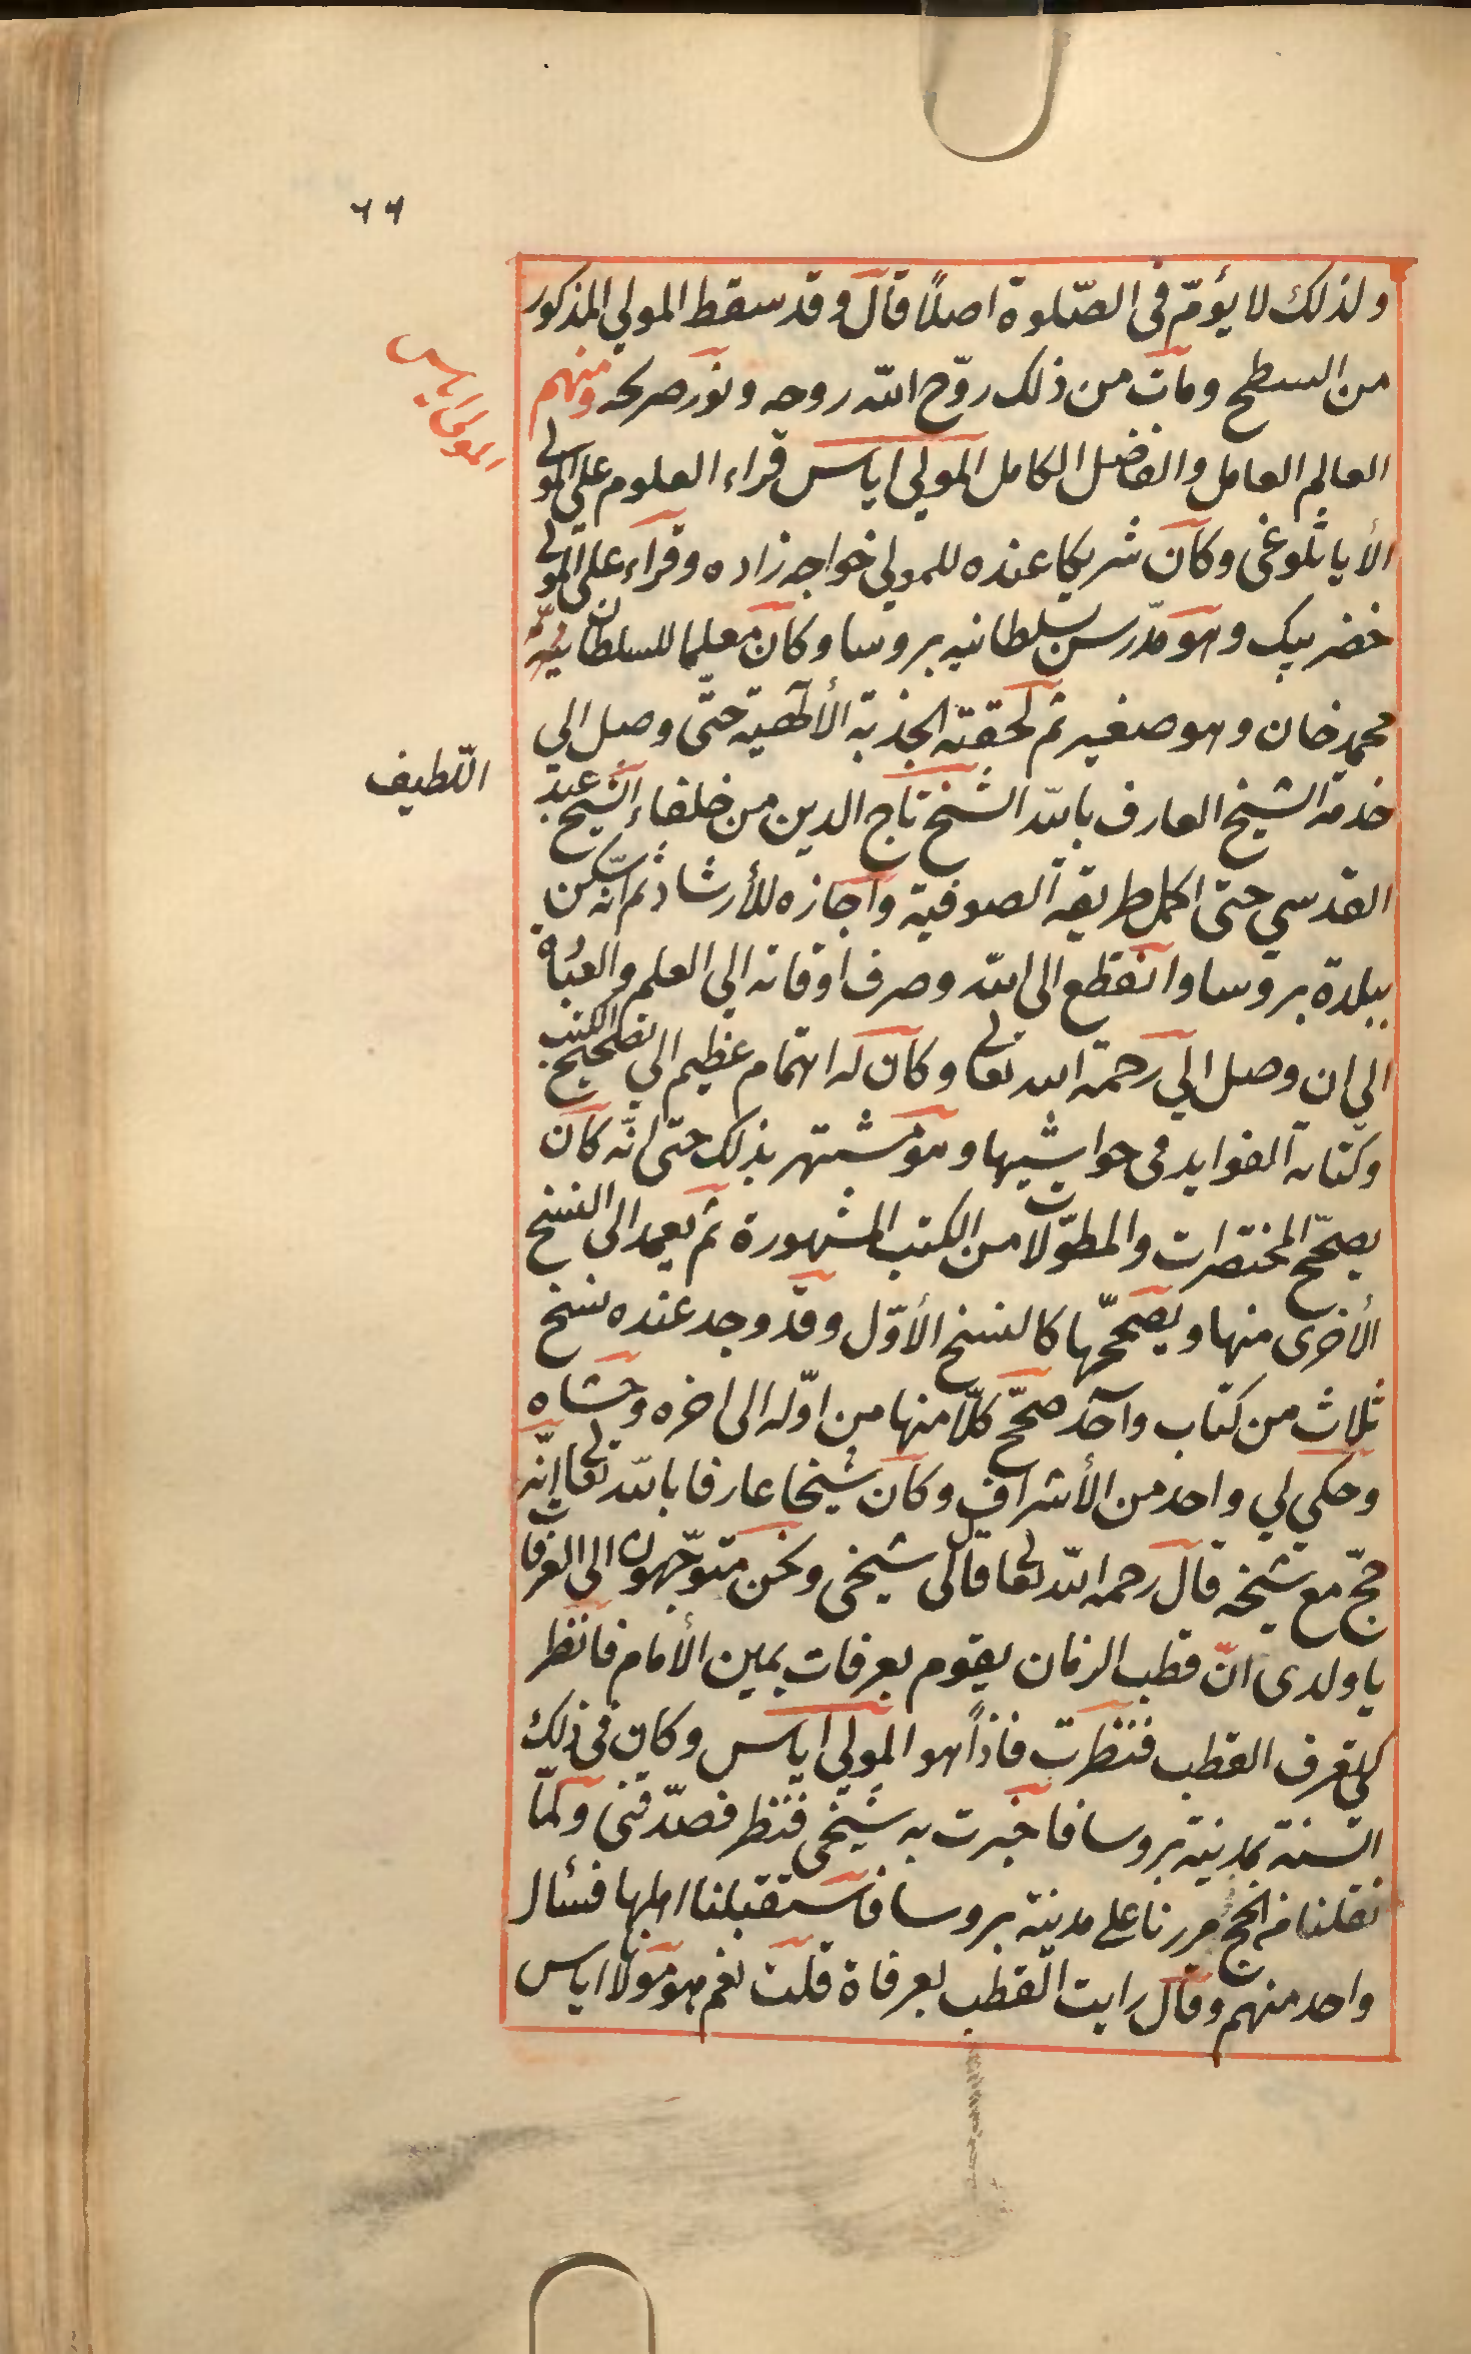 ٦٦
ولذلك لا يؤمّ في الصّلوة اصلاً قال وقد سقط المولى المذكور
من السطح ومات من ذلك روّح الله روحه ونوّر ضريحه ومنهم
المولى اياس
العالم العامل والفاضل الكامل المولى اياس قراء العلوم على المولى
الأياثلوغى وكان شريكا عنده للمولى خواجه زاده وقراء على المولى
خضر بيك وهو مدّرس بسلطانيه بروسا وكان معلما للسلطان
محمد خان وهو صغير ثم لحقته الجذبة الألهية حتّى وصل الى
خدمة الشيخ العارف بالله الشيخ تاج الدين من خلفاء الشيخ عبد
اللّطيف
القدسي حتى اكمل طريقة الصوفية واجازه للأرشاد ثم انّه سكن
ببلدة بروسا وانقطع الى الله وصرف اوقاته الى العلم والعبادة
الى ان وصل الى رحمة الله تعالى وكان له اهتمام عظيم الى تصحيح الكتب
وكتابة الفوايد في حواشيها وهو مشتهر بذلك حتّى انّه كان
يصحّح المختصرات والمطوّلات من الكتب المشهورة ثم يعمد الى النسخ
الأخرى منها ويصحّحها كالنسخ الأوّل وقد وجد عنده نسخ
ثلاث من كتاب واحد صحّح كلّا منها من اوّله الى اخره وحشاه
وحكى لي واحد من الأشراف وكان شيخا عارفا بالله تعالى انّه
حجّ مع شيخه قال رحمه الله تعالى قال لى شيخى ونحن متوجّهون الى العرفات
يا ولدى انّ قطب الزمان يقوم بعرفات يمين الأمام فانظر
كى تعرف القطب فنظرت فاذاً هو المولى اياس وكان في ذلك
السّنة بمدينة بروسا فاخبرت به شيخى فنظر فصدّقنى وكمّا
نقلنا من الحج مررنا على مدينة بروسا فاستقبلنا اهلها فسأل
واحد منهم وقال رايت القطب بعرفاة قلت نعم هو مولانا اياس